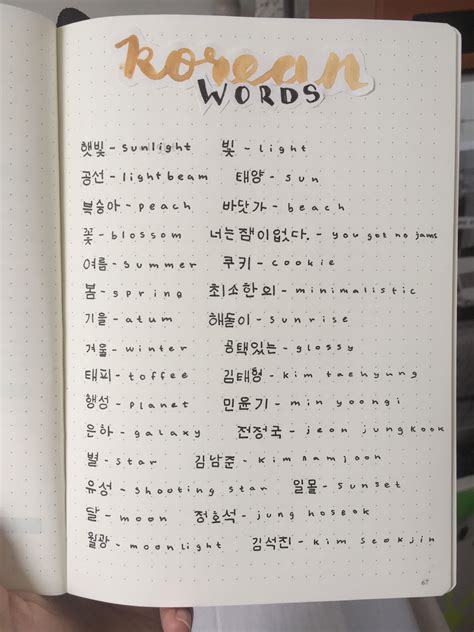 korean
WORDS
햇빛 - sunlight 빛 - light
공선 - lightbeam 태양 - sun
븍숭아 - peach 바닷가 - beach
꽃 - blossom 너는 잼이 없다. - you got no jams
여름 - summer 쿠키 - cookie
봄 - spring 최소한의 - minimalistic
기을 - atum 해돋이 - sunrise
겨울 - winter 공택있는 - glossy
태피 - toffee 김태형 - kim taehyung
행성 - planet 민윤기 - min yoongi
은하 - galaxy 전정국 - jeon jungkook
별 - star 김남준 - kim namjoon
유성 - shooting star 일몰 - sunset
달 - moon 정호석 - jung hoseok
월광 - moonlight 김석진 - kim seokjin
67